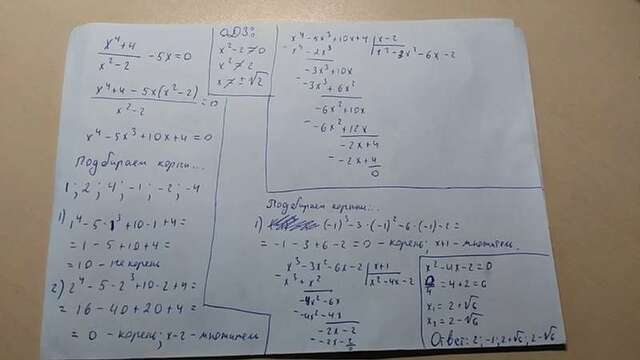 x⁴+4 / x²-2 - 5x = 0
x⁴+4-5x(x²-2) / x²-2 = 0
x⁴-5x³+10x+4=0
Подбираем корни...
1; 2; 4; -1; -2; -4
1) 1⁴-5·1³+10·1+4=
= 1-5+10+4=
= 10 - не корень
2) 2⁴-5·2³+10·2+4=
= 16-40+20+4=
= 0 - корень; x-2 - множитель
ОДЗ:
x²-2≠0
x²≠2
x≠±√2
x⁴-5x³+10x+4 | x-2
- x⁴-2x³ | x³-3x²-6x-2
-3x³+10x
- -3x³+6x²
-6x²+10x
- -6x²+12x
-2x+4
- -2x+4
0
Подбираем корни...
1) (-1)³-3·(-1)²-6·(-1)-2=
= -1-3+6-2=0 - корень; x+1 - множитель.
x³-3x²-6x-2 | x+1
- x³+x² | x²-4x-2
-4x²-6x
- -4x²-4x
-2x-2
- -2x-2
0
x²-4x-2=0
D/4 = 4+2=6
x₁=2+√6
x₂=2-√6
Ответ: 2; -1; 2+√6; 2-√6